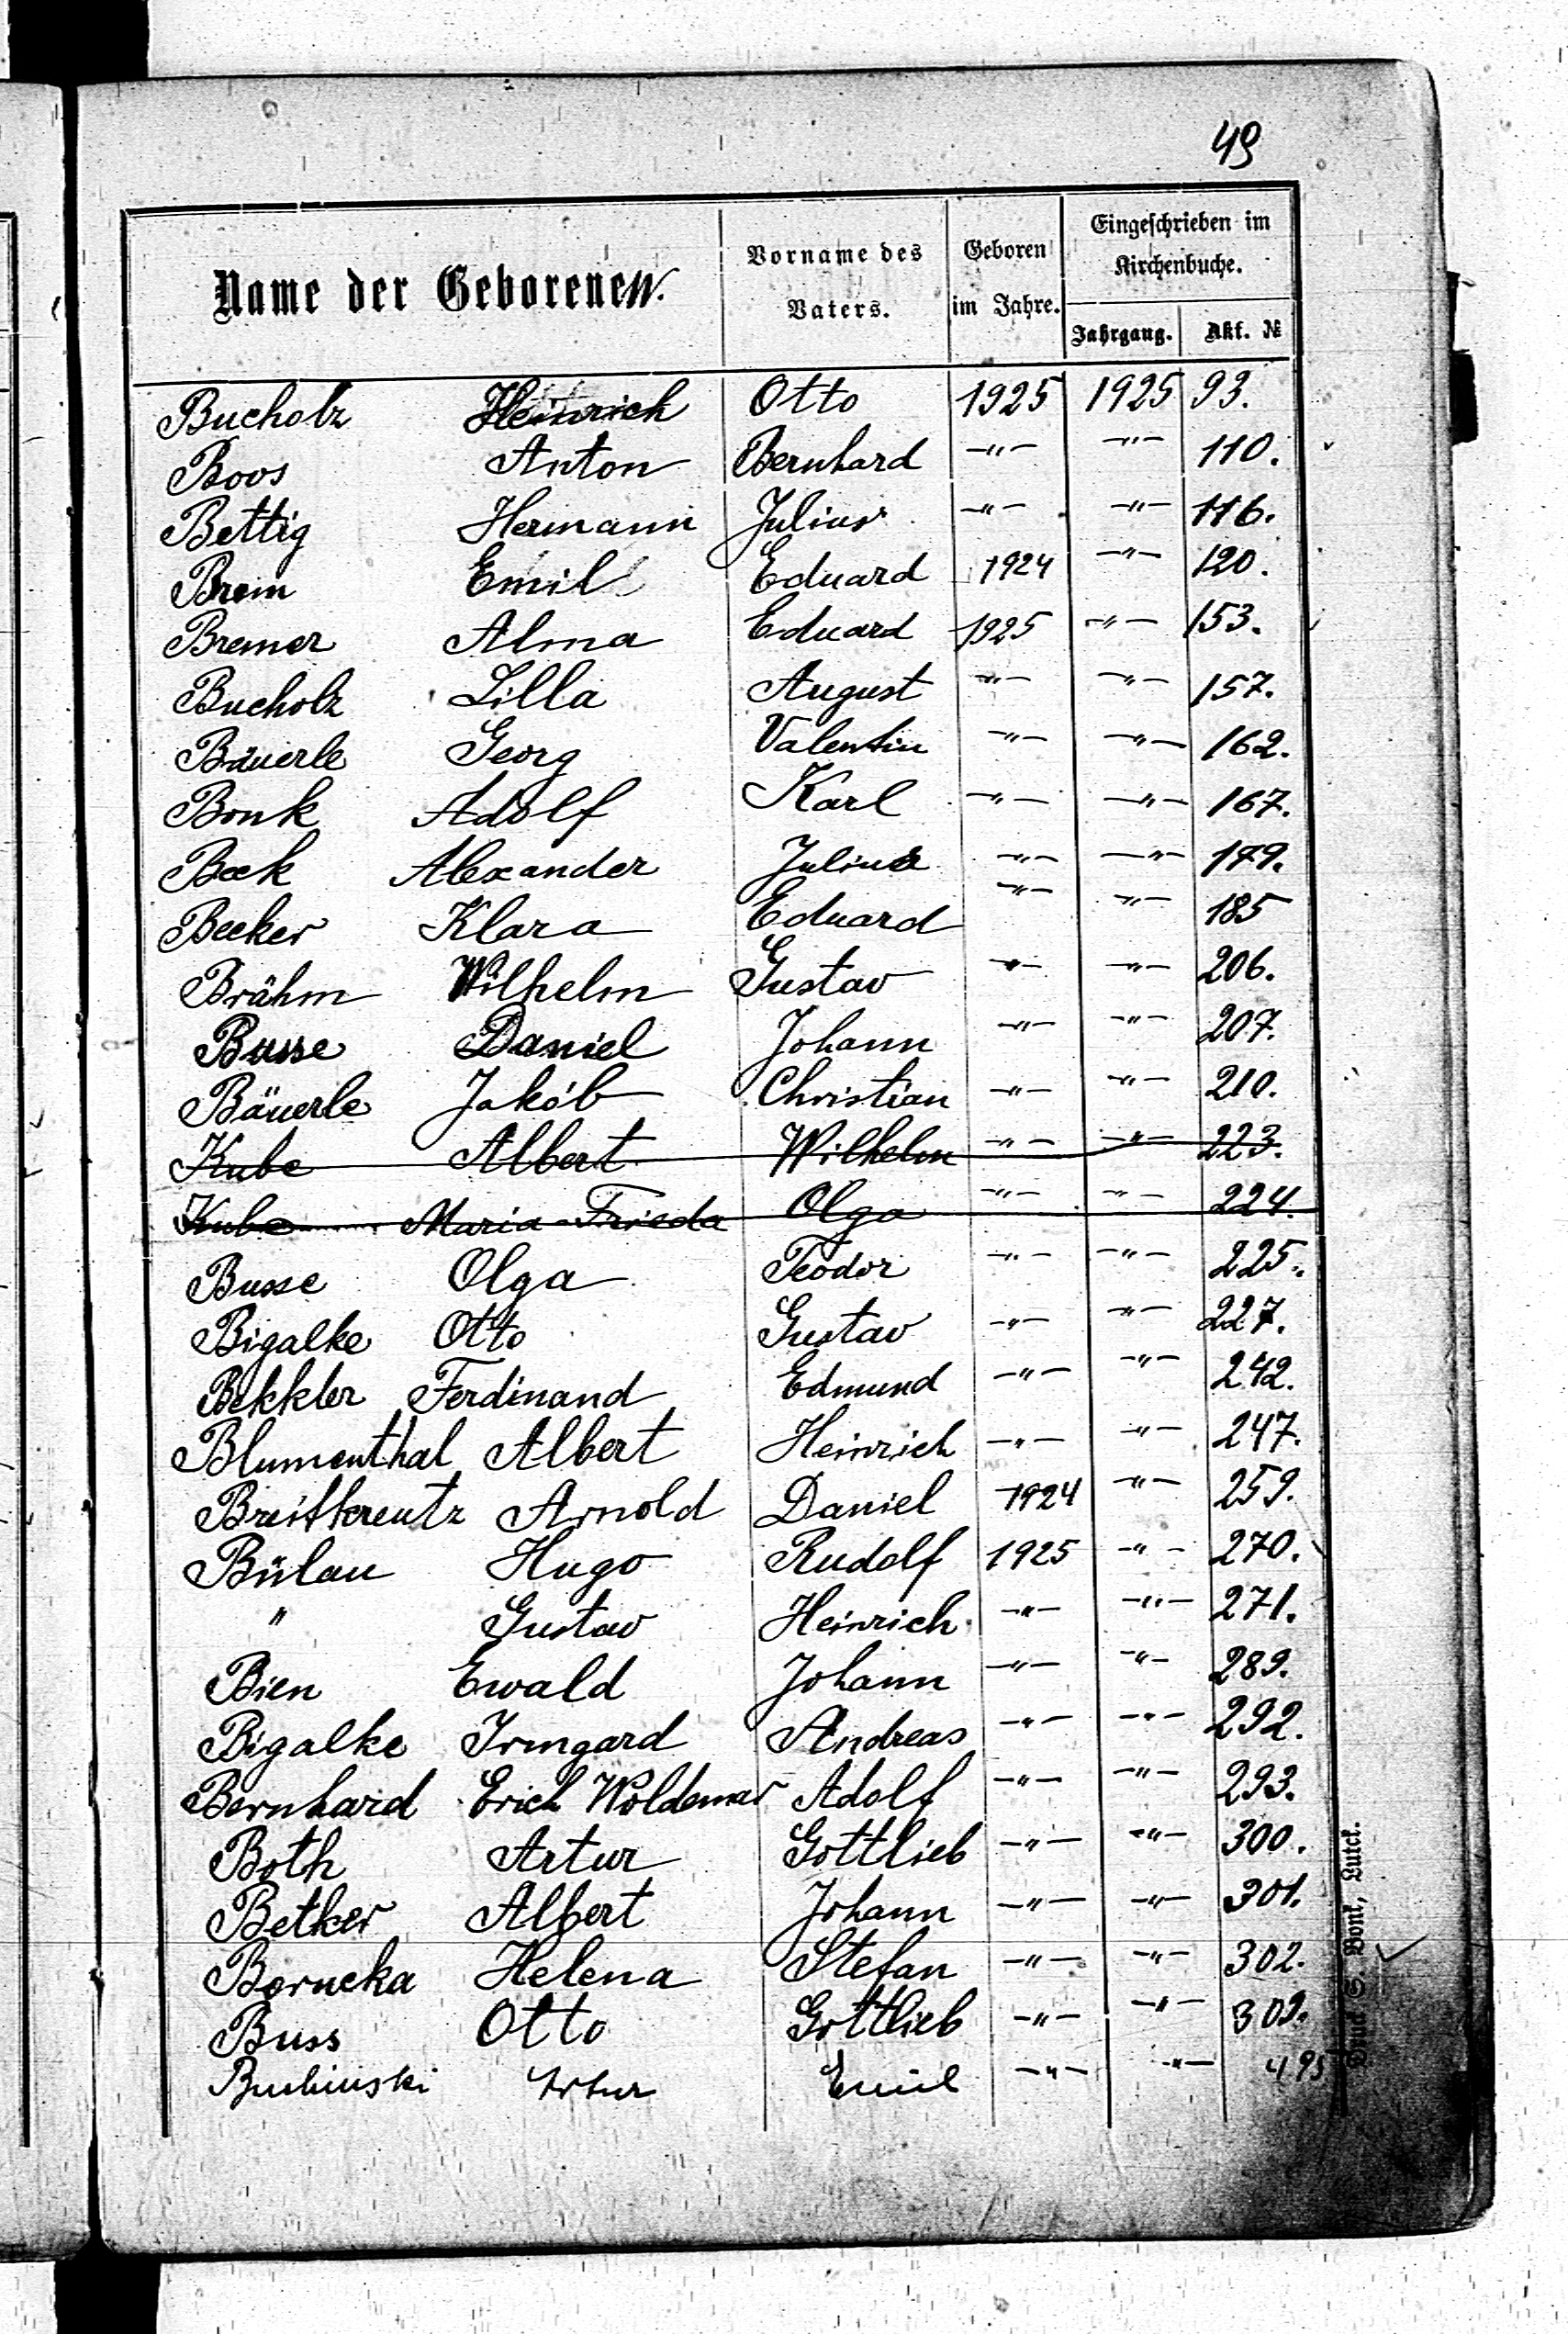 49
Name der Geborenen.
Vorname des Vaters.
Geboren im Jahre.
Eingeschrieben im Kirchenbuche.
Jahrgang. Akt. №
Bucholz Heinrich Otto 1925 1925 93.
Boos Anton Bernhard -"- -"- 110.
Bettig Hermann Julius -"- -"- 116.
Brem Emil Eduard 1924 -"- 120.
Bremer Alma Eduard 1925 -"- 153.
Bucholz Lilla August -"- -"- 157.
Bäuerle Georg Valentin -"- -"- 162.
Bonk Adolf Karl -"- -"- 167.
Beck Alexander Julius -"- -"- 179.
Becker Klara Eduard -"- -"- 185
Brähm Wilhelm Gustav -"- -"- 206.
Busse Daniel Johann -"- -"- 207.
Bäuerle Jakób Christian -"- -"- 210.
Kube Albert Wilhelm -"- -"- 223.
Kube Maria Frieda Olga -"- -"- 224.
Busse Olga Teodor -"- -"- 225.
Bigalke Otto Gustav -"- -"- 227.
Bekkler Ferdinand Edmund -"- -"- 242.
Blumenthal Albert Heinrich -"- -"- 247.
Breitkreutz Arnold Daniel 1924 -"- 259.
Bülau Hugo Rudolf 1925 -"- 270.
" Gustav Heinrich -"- -"- 271.
Bien Ewald Johann -"- -"- 289.
Bigalke Irmgard Andreas -"- -"- 292.
Bernhard Erich Woldemar Adolf -"- -"- 293.
Both Artur Gottlieb -"- -"- 300.
Betker Albert Johann -"- -"- 301.
Borucka Helena Stefan -"- -"- 302.
Buss Otto Gottlieb -"- -"- 309.
Artur Emil -"- -"- 495
Druck S. Bont, Luck.